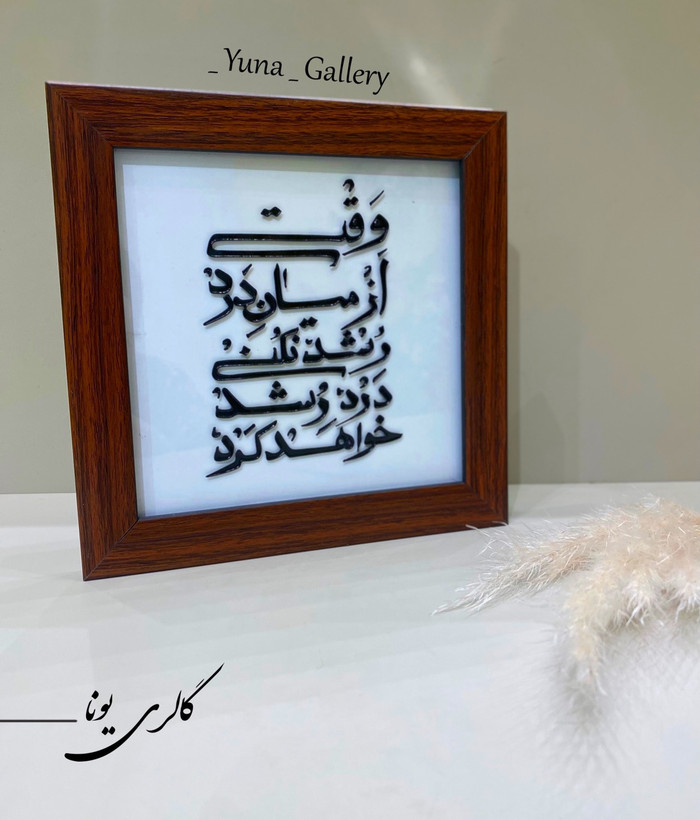 _Yuna_Gallery
وَقْتی
اَز میانِ دَرد
رُشد نَکُنی
دَرد رُشد
خواهد کَرد
گالری یونا